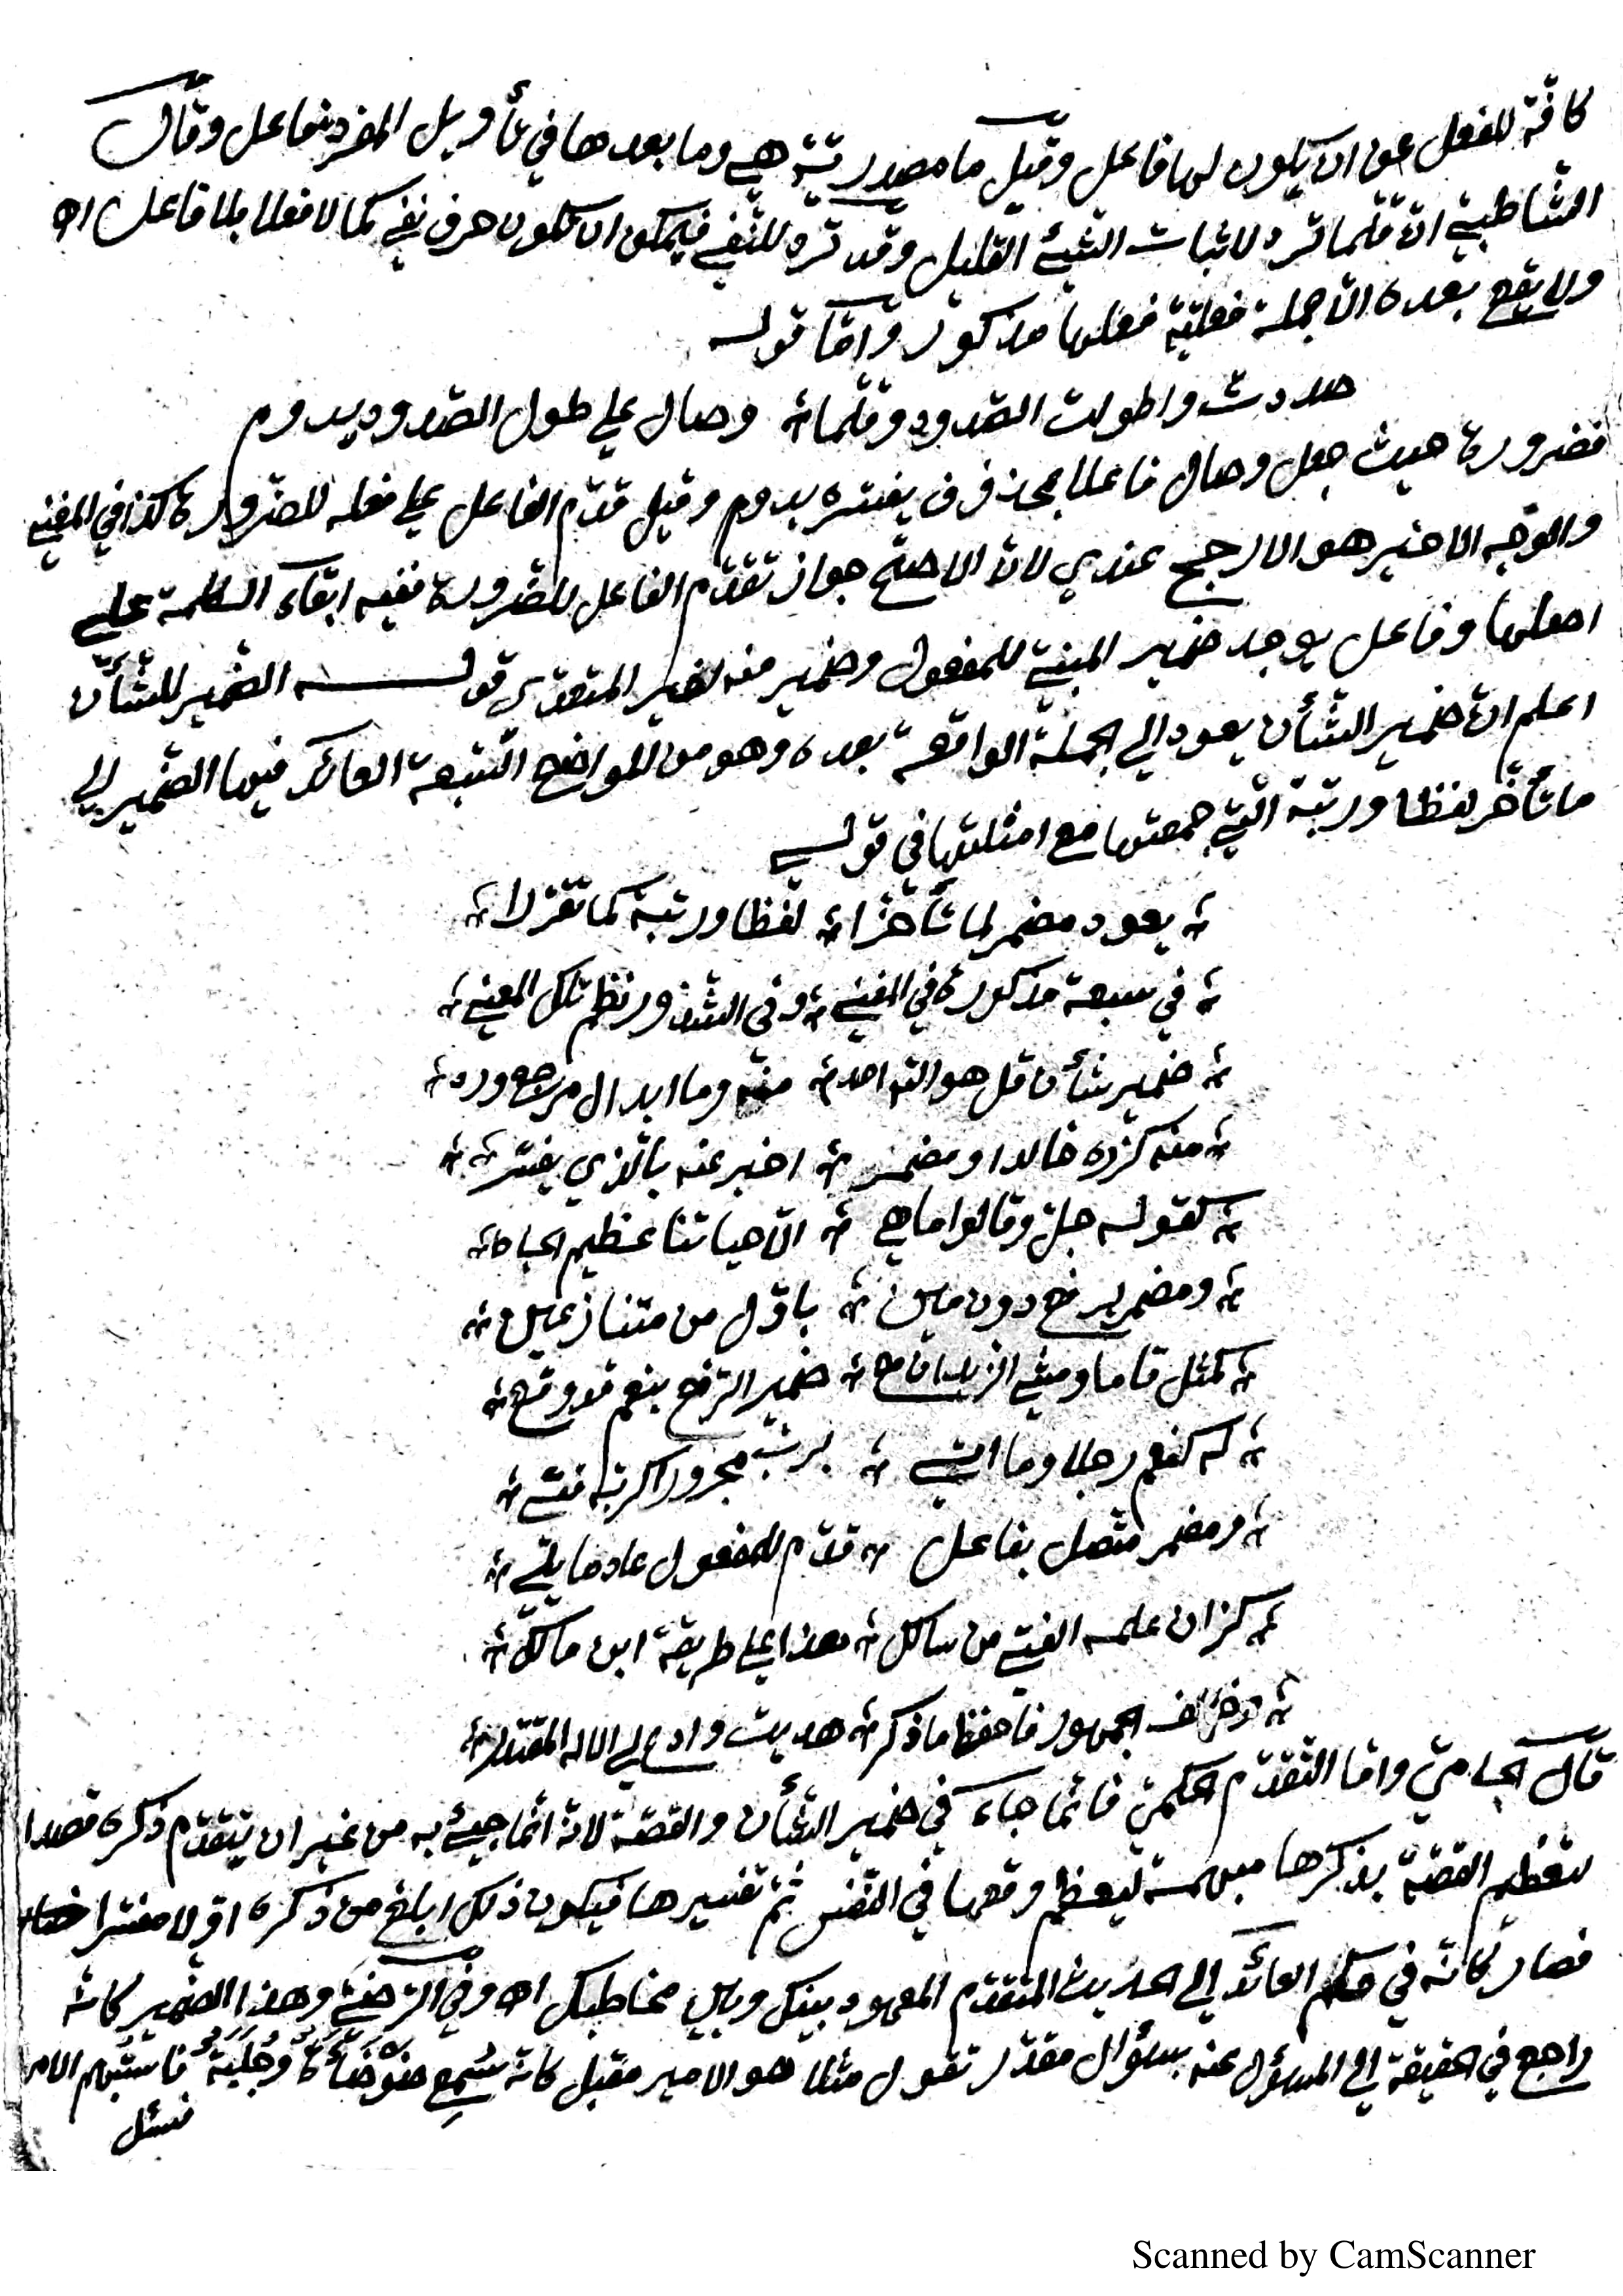 كافّة للفعل عن ان يكون لها فاعل وقيل ما مصدريّة هي وما بعدها في تأويل المفرد فاعل وقال
الشاطبيّ انّ قلّما ترد لاثبات الشيئ القليل وقد ترد للنّفي فيمكن ان تكون حرف نفي كما لا فعلا بلا فاعل اه
ولا يقع بعده الّا جملة فعليّة فعلها مذكور وامّا قوله
صددت واطولت الصّدود وقلّما وصال علي طول الصّدود يدوم
فضرورة حيث جعل وصال فاعلا بمحذوف يفسّره يدوم وقيل قدّم الفاعل علي فعله للضّرورة كذا في المغني
والوجه الاخير هو الارجح عندي لانّ الاصحّ جواز تقدّم الفاعل للضّرورة ففيه ابقاء الكلمة علي
اصلها وفاعل يوجد ضمير المبنيّ للمفعول وضمير منه لضمير المتعدّي قوله الضّمير للشّأن
اعلم انّ ضمير الشّأن يعود الي الجملة الواقعة بعده وهو من المواضع السّبعة العائد فيها الضّمير الي
ما تأخّر لفظا ورتبة الّتي جمعتها مع امثلتها في قولي
يعود مضمر لما تأخّرا لفظا ورتبة كما تقرّرا
في سبعة مذكورة في المغني وفي الشّذور نظم تلك المعني
ضمير شأن قل هو الله احد منه وما ابدال مرجع ورد
منه كزره خالدا ومضمر اخبر عنه بالّذي يفسّر
كقوله جلّ وقالوا ما هي الّا حياتنا عظيم الجاه
ومضمر يرفع دون مين باوّل من متنازعين
كمثل قاما ومشي الزيدان مع ضمير الرّفع بنعم قد وقع
له كنعم رجلا وما اتي بربّ مجرورا كربّه فتي
ومضمر متّصل بفاعل قدّم للمفعول عاد ما يلي
كزان علمه الفتي من سالك هذا علي طريقة ابن مالك
وخالف الجمهور فاحفظ ما ذكر هديت وادع لي الاله المقتدر
قال الجاميّ وامّا التّقدّم الحكميّ فانّما جاء في ضمير الشّأن والقصّة لانّه انّما جيئ به من غير ان يتقدّم ذكره قصدا
لتعظيم القصّة بذكرها مبهمة ليعظم وقعها في النّفس ثمّ تفسيرها فيكون ذلك ابلغ من ذكره اوّلا مفسّرا
فصار كانّه في حكم العائد الي الحديث المتقدّم المعهود بينك وبين مخاطبك اه وفي الرّضيّ وهذا الضمير كانّه
راجع في الحقيقة الي المسؤل عنه بسؤال مقدّر تقول مثلا هو الامير مقبل كانّه سُمِع ضَوْضَأَةٌ وجَلَبَةٌ فاستُبهم الامر
فسئل
Scanned by CamScanner